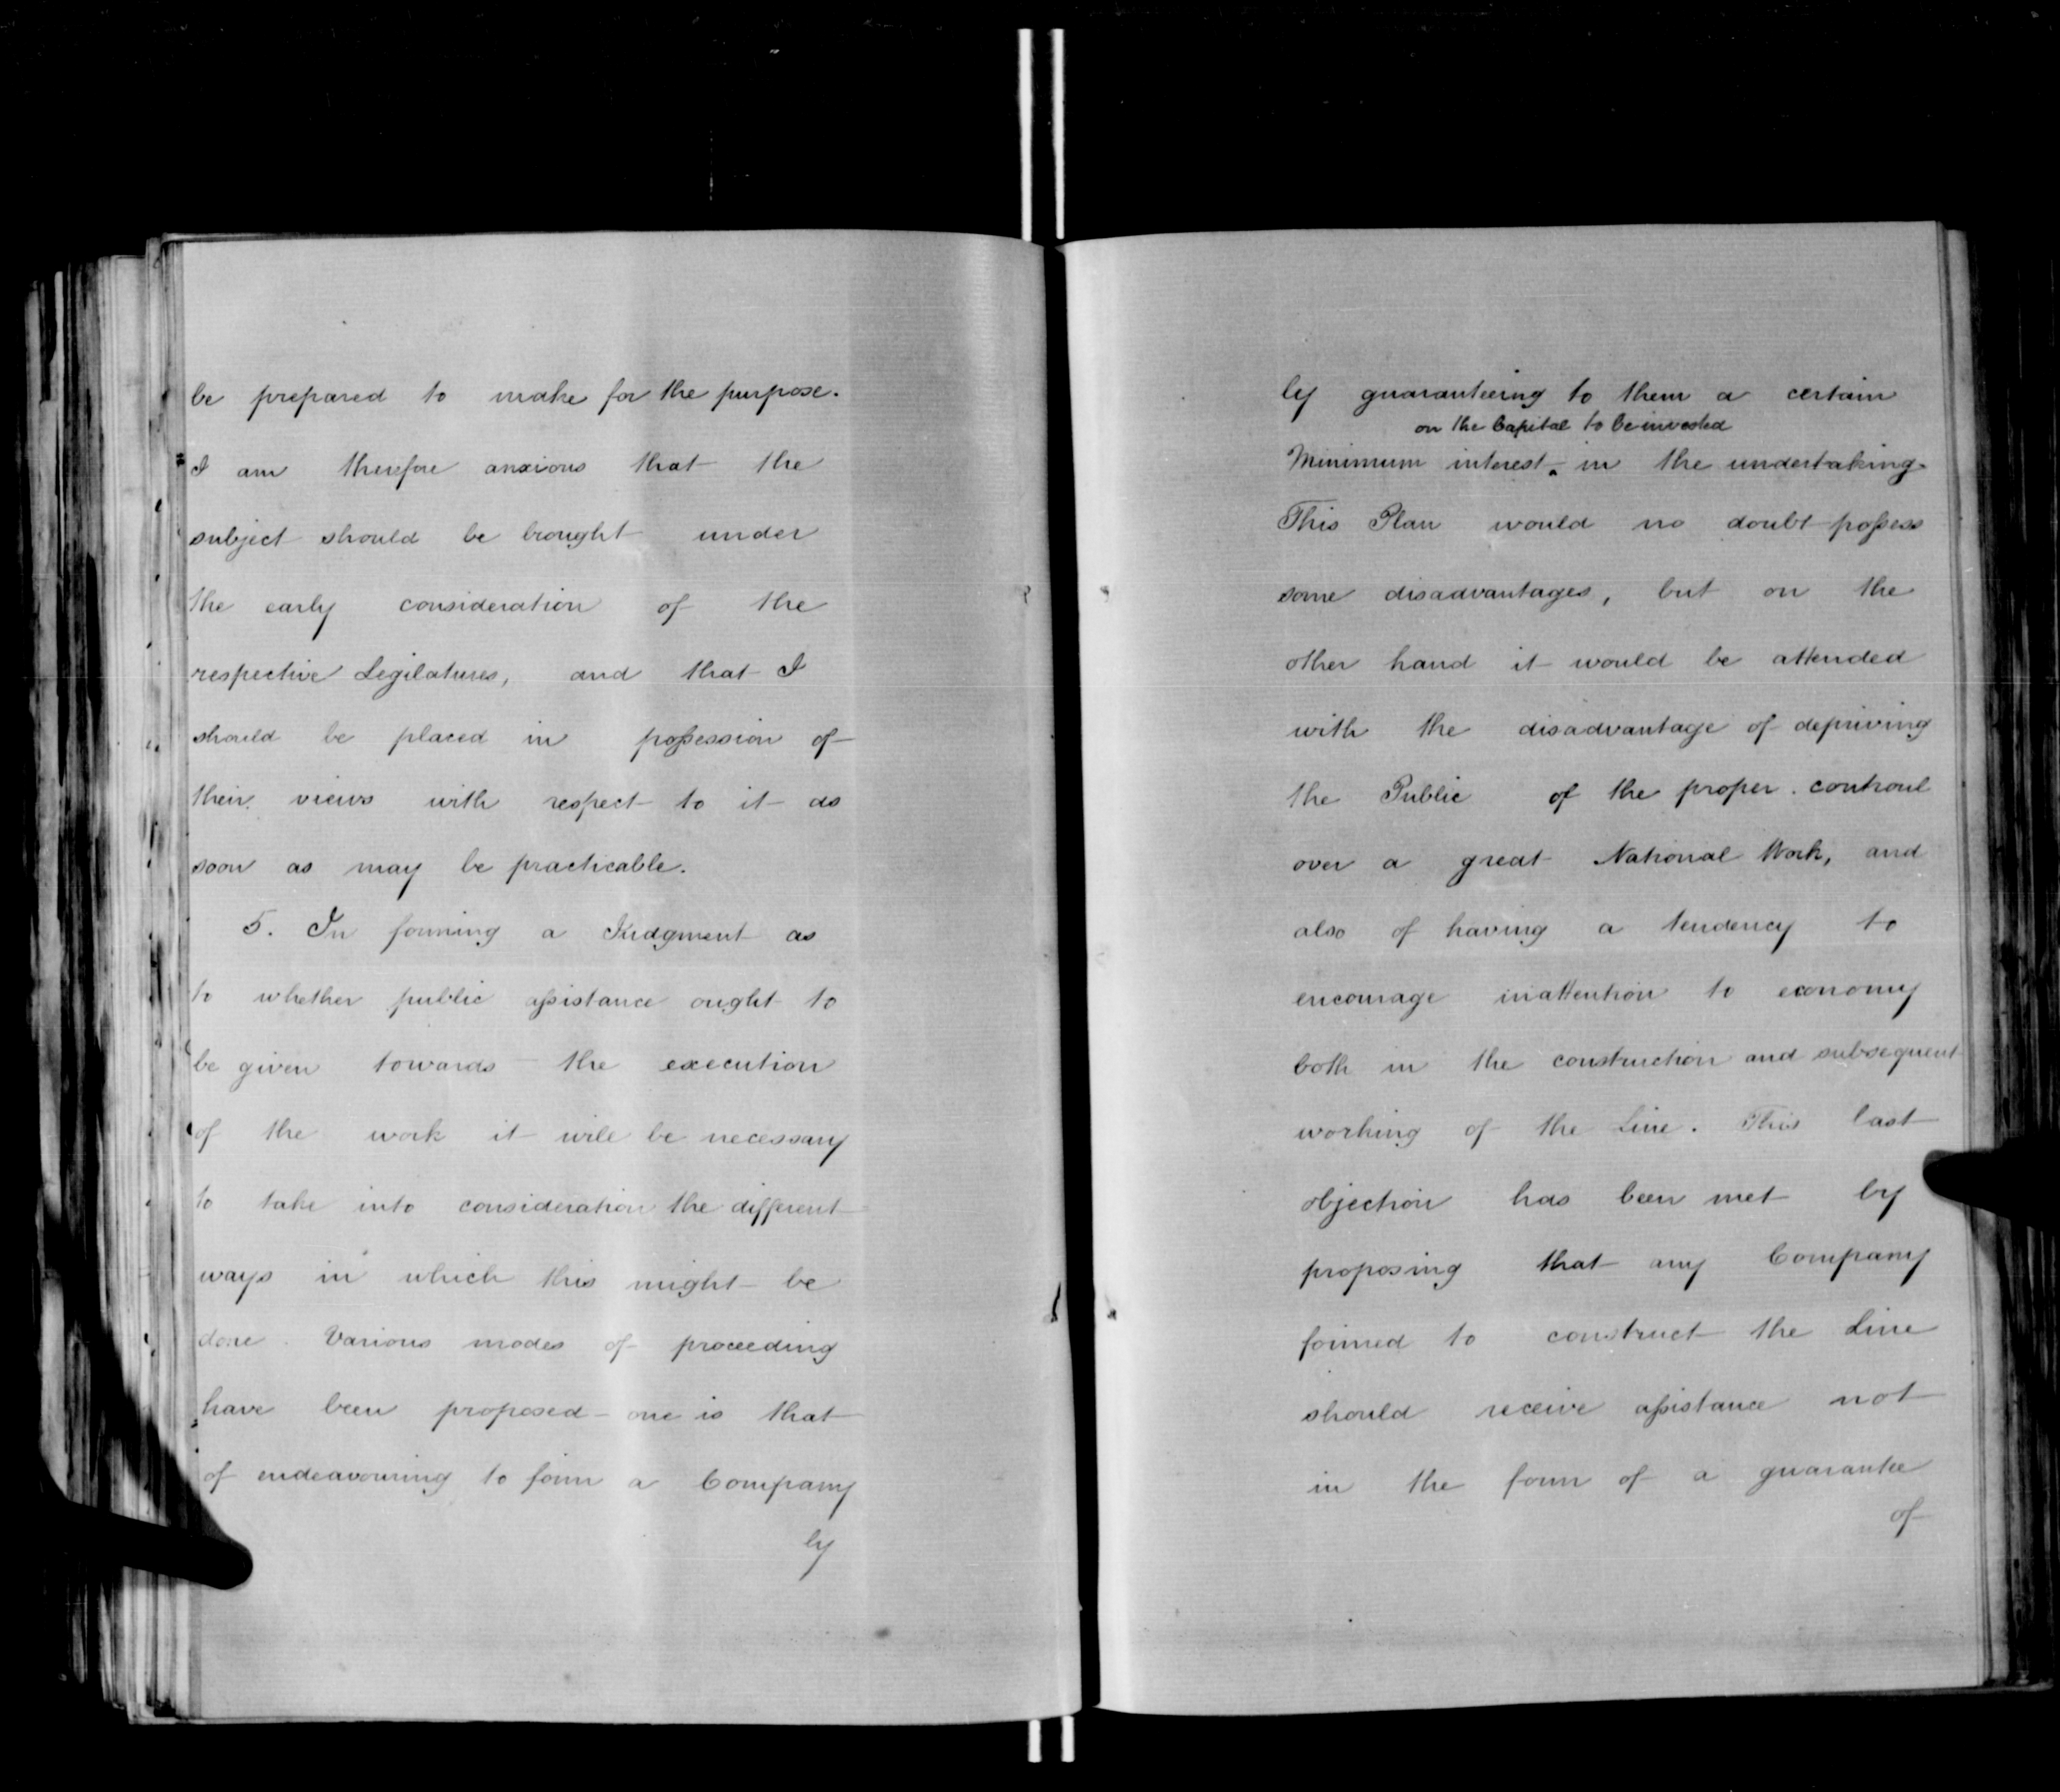 be prepared to make for the purpose.
I am therefore anxious that the
subject should be brought under
the early consideration of the
respective Legilatures, and that I
should be placed in possession of
their views with respect to it as
soon as may be practicable.
5. In forming a Judgment as
to whether public assistance ought to
be given towards the execution
of the work it will be necessary
to take into consideration the different
ways in which this might be
done. Various modes of proceeding
have been proposed - one is that
of endeavouring to form a Company
by
by guaranteeing to them a certain
on the Capital to be invested
Minimum interest ‸ in the undertaking.
This Plan would no doubt possess
some disadvantages, but on the
other hand it would be attended
with the disadvantage of depriving
the Public of the proper controul
over a great National Work, and
also of having a tendency to
encourage inattention to economy
both in the construction and subsequent
working of the Line. This last
objection has been met by
proposing that any Company
formed to construct the Line
should receive assistance not
in the form of a guarantee
of